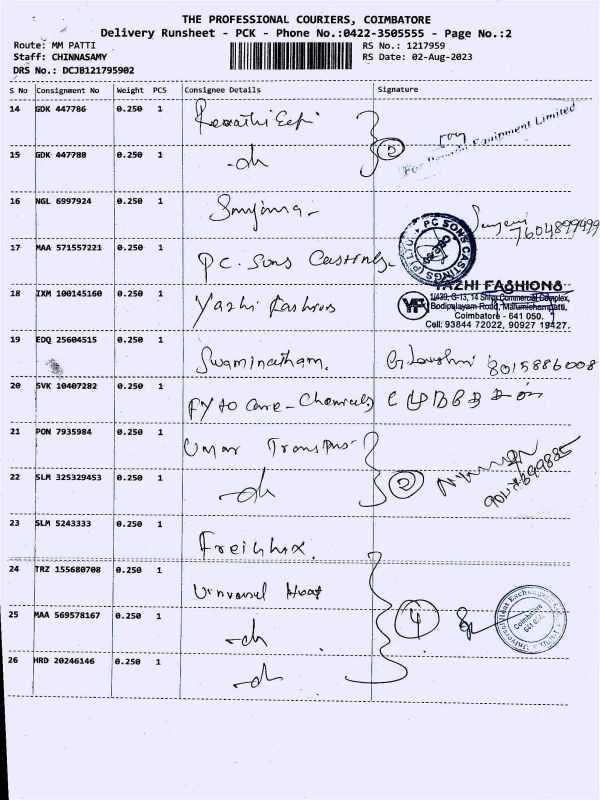 THE PROFESSIONAL COURIERS, COIMBATORE
Delivery Runsheet - PCK - Phone No.:0422-3505555 - Page No.:2
Route: MM PATTI RS No.: 1217959
Staff: CHINNASAMY RS Date: 02-Aug-2023
DRS No.: DCJB121795902
S No Consignment No Weight PCS Consignee Details Signature
14 GDK 447786 0.250 1
For Equipment Limited
15 GDK 447780 0.250 1 -do 2
16 NGL 6997924 0.250 1 7604899499
17 MAA 571557221 0.250 1 P.C. Sons Castings. PC SONS CASTINGS (P) LTD
18 IXM 100145160 0.250 1 Yazhi Fashions YAZHI FASHIONS
YF 1/439, G-13, 14 Shree Commercial Complex,
Bodipalayam Road, Malumichampatti,
Coimbatore - 641 050.
Cell: 93844 72022, 90927 19427.
19 EDQ 25604515 0.250 1 Swaminatham. 8015886008
20 SVK 10407282 0.250 1 FYTO Care - Chemicals
21 PON 7935984 0.250 1 Umar
22 SLM 325329453 0.250 1 -do 2
23 SLM 5243333 0.250 1
24 TRZ 155680708 0.250 1 Universal Heat
25 MAA 569578167 0.250 1 -do 4 Coimbatore
26 HRD 20246146 0.250 1 -do